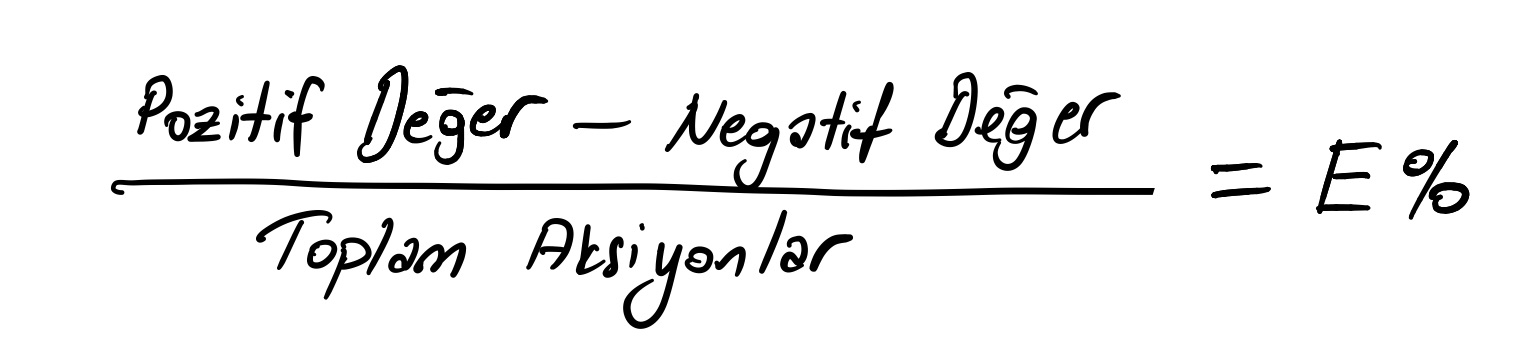 Pozitif Değer - Negatif Değer
= E%
Toplam Aksiyonlar